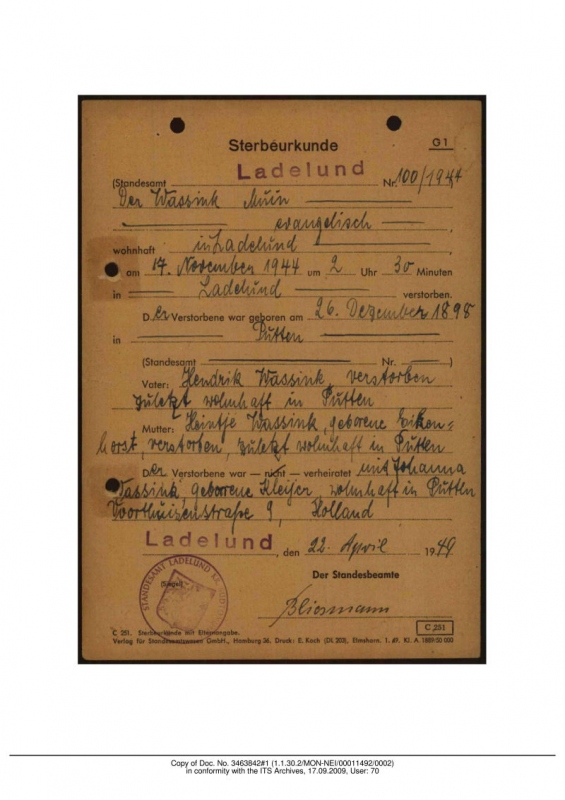 Sterbeurkunde
G 1
(Standesamt Ladelund Nr. 100/1944
Der Wassink
evangelisch
wohnhaft in Ladelund
am 17. November 1944 um 2 Uhr 30 Minuten
in Ladelund verstorben.
Der Verstorbene war geboren am 26. Dezember 1898
in Putten
(Standesamt Nr. )
Vater: Hendrik Wassink, verstorben
zuletzt wohnhaft in Putten
Mutter: Heintje Wassink, geborene
horst, verstorben, zuletzt wohnhaft in Putten
Der Verstorbene war — nicht — verheiratet mit Johanna
Wassink, geborene Kleijer, wohnhaft in Putten
Voorthuizenstraße 9, Holland
Ladelund, den 22. April 1949
Der Standesbeamte
(Siegel)
STANDESAMT LADELUND
C 251
C 251. Sterbeurkunde mit Elternangabe.
Verlag für Standesamtswesen GmbH., Hamburg-36. Druck: E. Koch (DL 203), Elmshorn. 1. 49. Kl. A 1889-50 000
Copy of Doc. No. 3463842#1 (1.1.30.2/MON-NEI/00011492/0002)
in conformity with the ITS Archives, 17.09.2009, User: 70